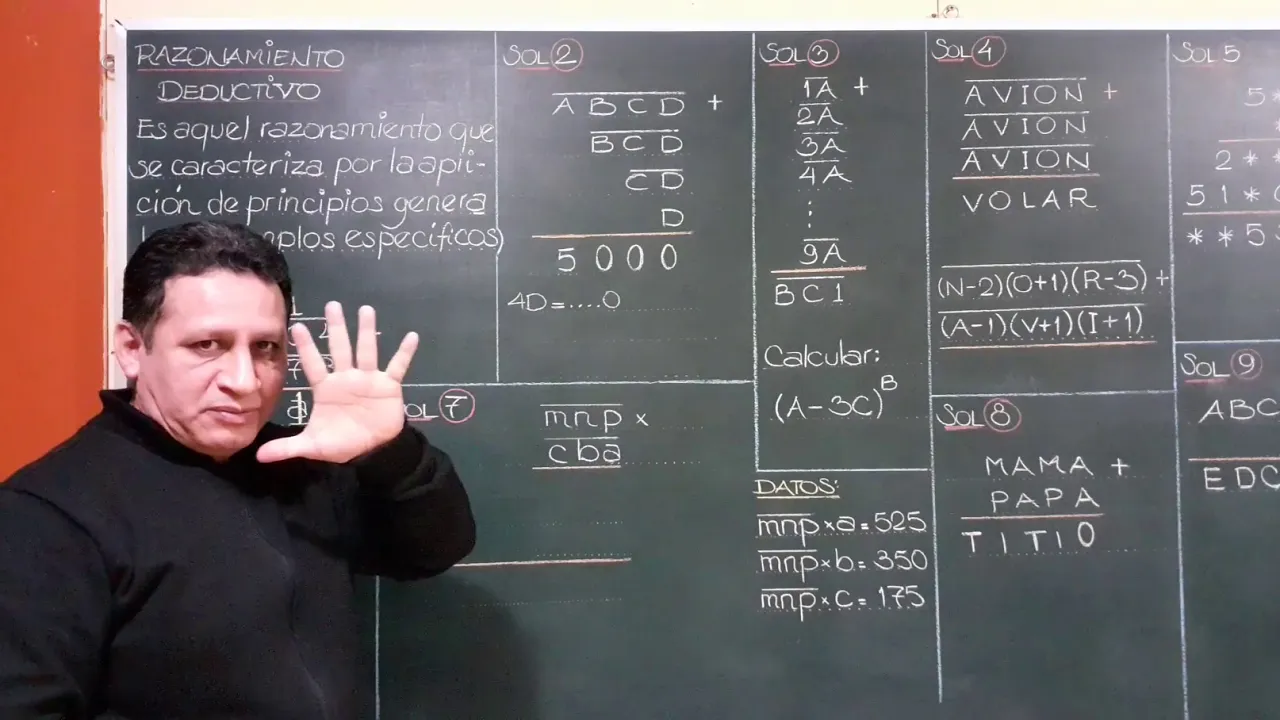 RAZONAMIENTO
DEDUCTIVO
Es aquel razonamiento que
se caracteriza por la apli-
ción de principios genera
específicos)
SOL 2
A B C D +
B C D
C D
D
5 0 0 0
4D = ....0
SOL 3
1A +
2A
3A
4A
⋮
9A
B C 1
Calcular:
(A - 3C)^B
SOL 4
A V I O N +
A V I O N
A V I O N
V O L A R
(N-2)(O+1)(R-3) +
(A-1)(V+1)(I+1)
SOL 5
5 *
2 * *
5 1 *
* * 5
SOL 7
mnp ×
cba
DATOS:
mnp × a = 525
mnp × b = 350
mnp × c = 175
SOL 8
M A M A +
P A P A
T I T I O
SOL 9
ABC
EDC